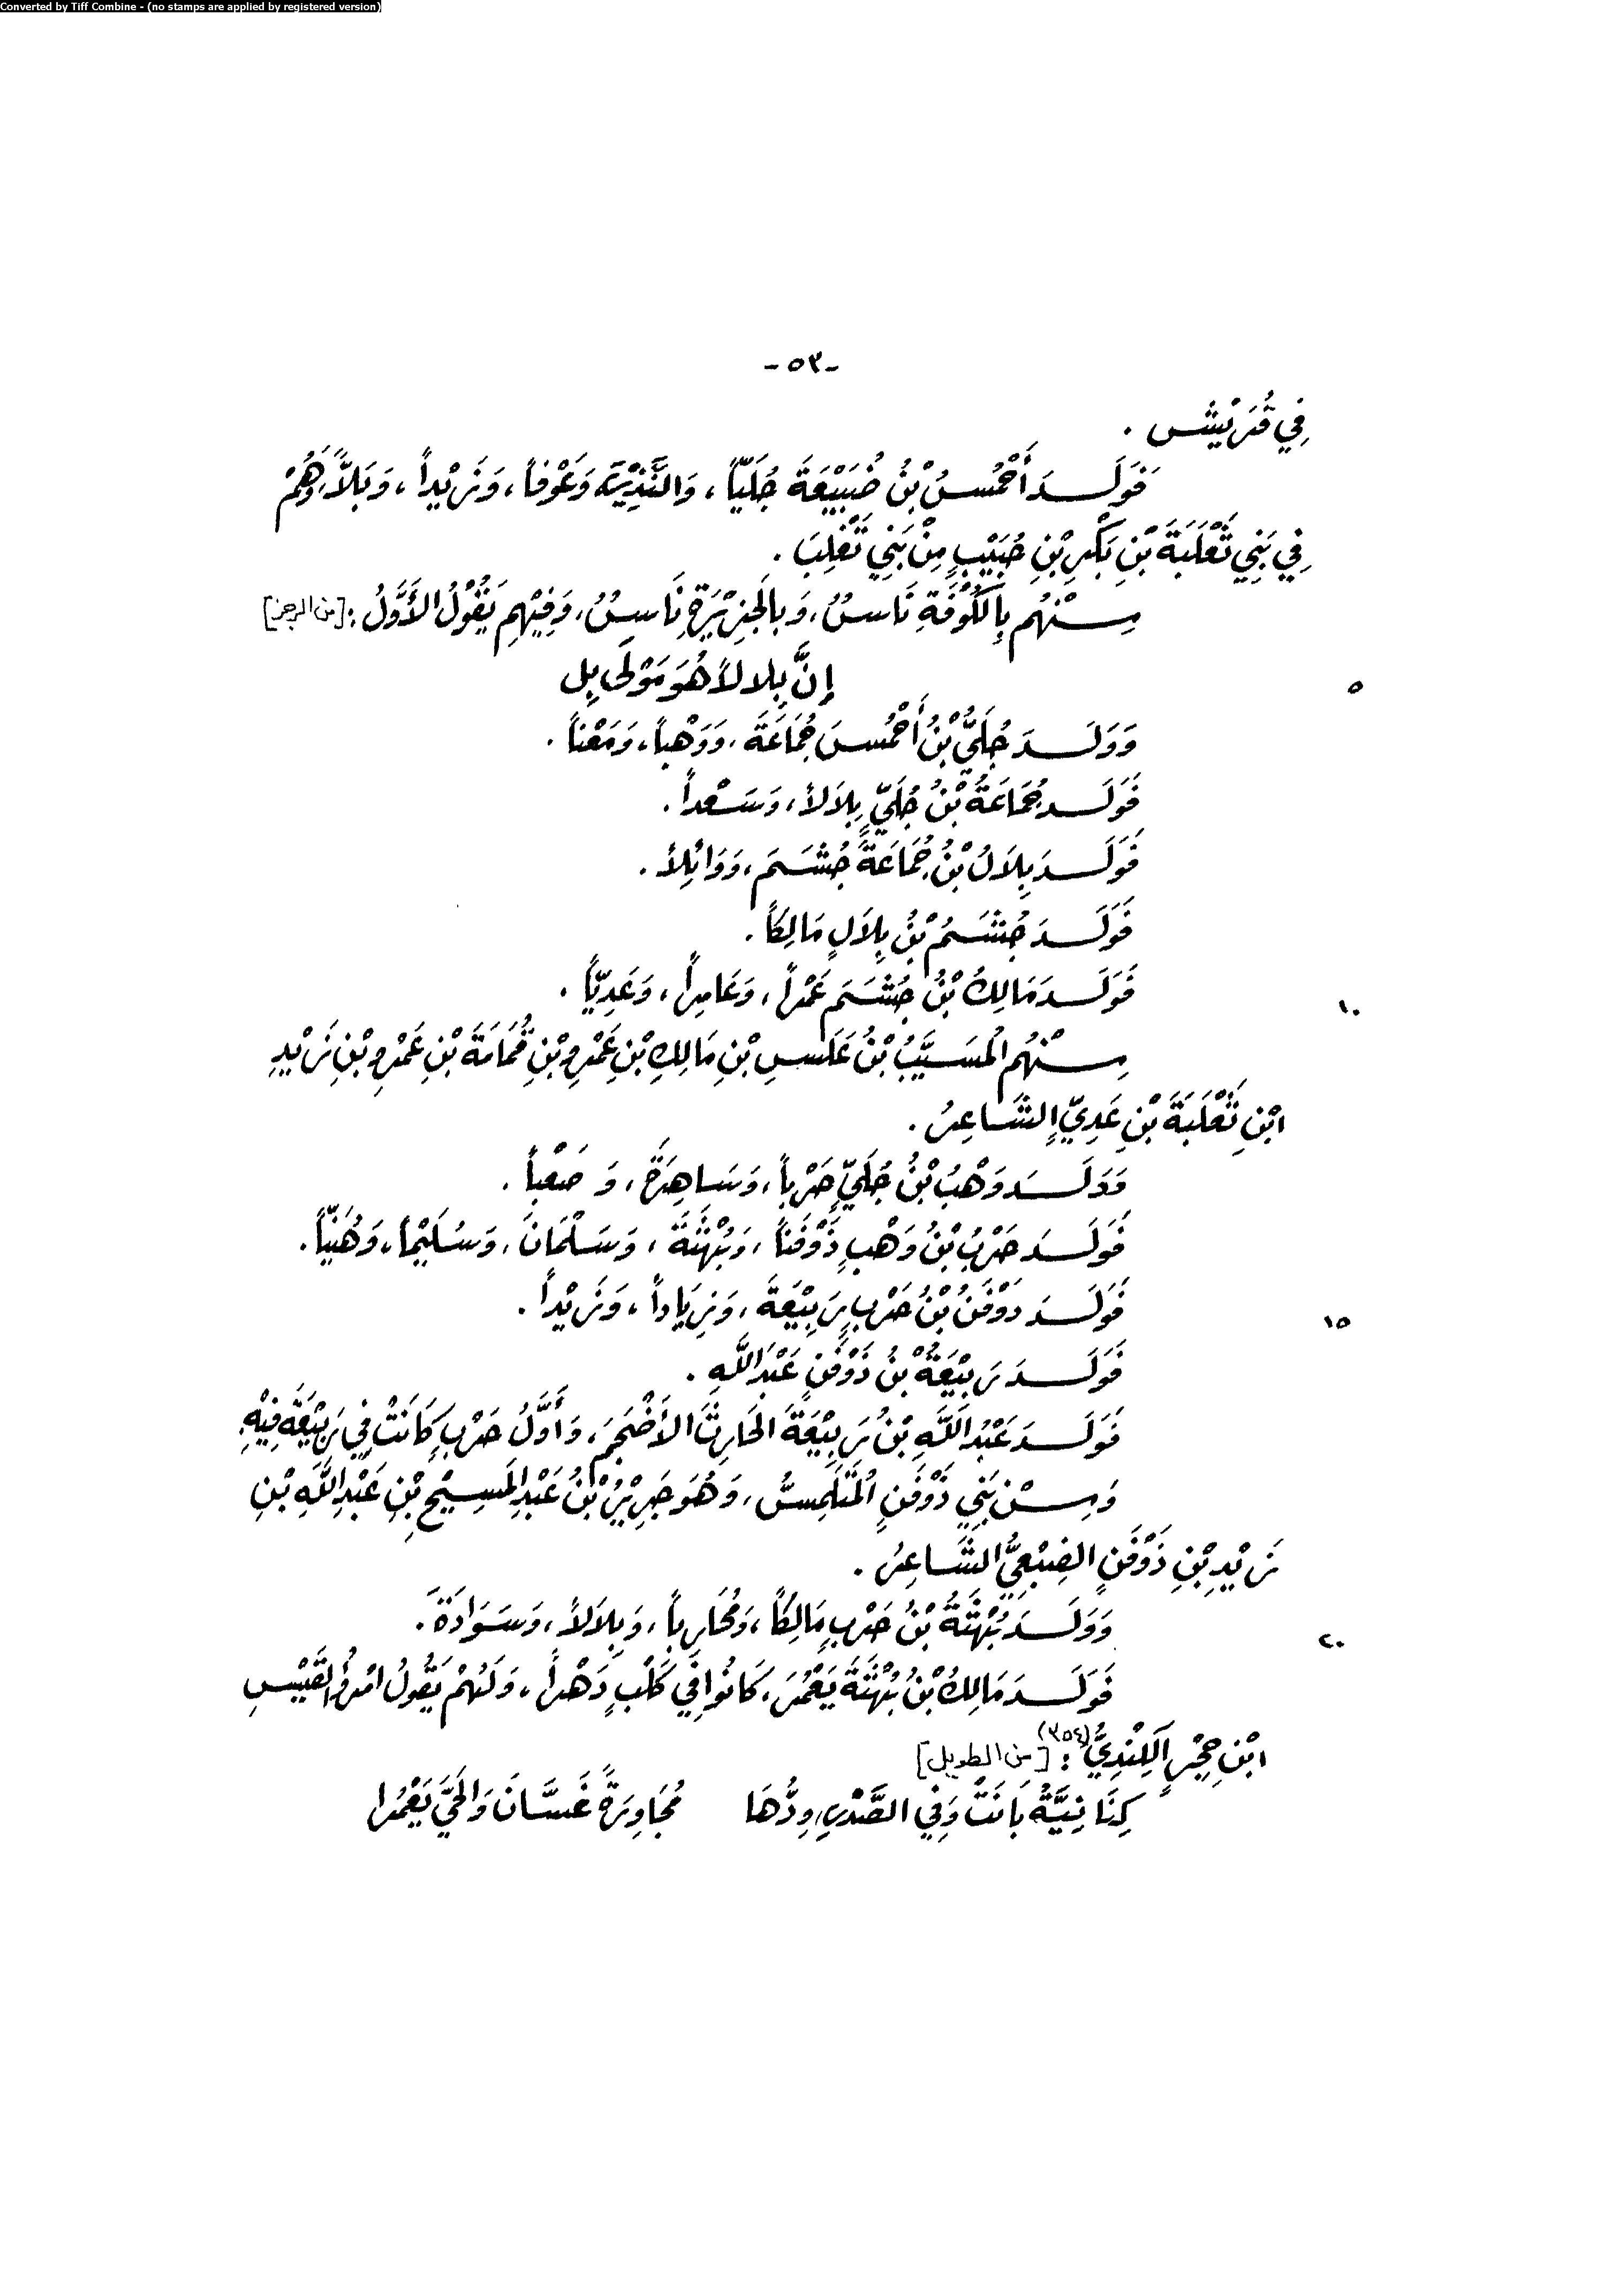 Converted by Tiff Combine - (no stamps are applied by registered version)
-٥٣-
فِي قُرَيْشٍ .
فَوَلَدَ أَحْمُسُ بْنُ ضُبَيْعَةَ جُلَيّاً، وَالنَّذِيْرَ، وَعَوْفاً، وَزَيْداً، وَبَلاًّ، وَهُمْ
فِي بَنِي ثَعْلَبَةَ بْنِ بَكْرِ بْنِ حُبَيْبٍ مِنْ بَنِي تَغْلِبَ .
مِنْهُم بِالكُوْفَةِ نَاسٌ، وَبِالجَزِيْرَةِ نَاسٌ، وَفِيْهِم يَقُوْلُ الأَوَّلُ : [من الرجز]
٥
إِنَّ بِلالاً هُوَ مَوْلَى بِل
وَوَلَدَ جُلَيُّ بْنُ أَحْمُسَ جُمَاعَةَ، وَوَهْباً، وَمَعْناً .
فَوَلَدَ جُمَاعَةُ بْنُ جُلَيٍّ بِلاَلاً، وَسَعْداً .
فَوَلَدَ بِلاَلُ بْنُ جُمَاعَةَ جُشَمَ، وَوَائِلاً .
فَوَلَدَ جُشَمُ بْنُ بِلاَلٍ مَالِكاً .
١٠
فَوَلَدَ مَالِكُ بْنُ جُشَمَ عَمْراً، وَعَامِراً، وَعَدِيّاً .
مِنْهُم المُسَيَّبُ بْنُ عَلَسِ بْنِ مَالِكِ بْنِ عَمْرِو بْنِ قُمَامَةَ بْنِ عَمْرِو بْنِ زَيْدِ
ابْنِ ثَعْلَبَةَ بْنِ عَدِيٍّ الشَّاعِرُ .
وَوَلَدَ وَهْبُ بْنُ جُلَيٍّ حَرْباً، وَسَاهِرَةَ، وَ صَعْباً .
فَوَلَدَ حَرْبُ بْنُ وَهْبٍ دَوْفَناً، وَبُهْثَةَ، وَسَلْمَانَ، وَسُلَيْماً، وَهُنَيّاً .
١٥
فَوَلَدَ دَوْفَنُ بْنُ حَرْبٍ رَبِيْعَةَ، وَزِيَاداً، وَزَيْداً .
فَوَلَدَ رَبِيْعَةُ بْنُ دَوْفَنٍ عَبْدَ اللَّهِ .
فَوَلَدَ عَبْدُ اللَّهِ بْنُ رَبِيْعَةَ الحَارِثَ الأَضْجَمَ، وَأَوَّلُ حَرْبٍ كَانَتْ فِي رَبِيْعَةَ فِيْهِ
وَمِنْ بَنِي دَوْفَنٍ المُتَلَمِّسُ، وَهُوَ جَرِيْرُ بْنُ عَبْدِ المَسِيْحِ بْنِ عَبْدِ اللَّهِ بْنِ
زَيْدِ بْنِ دَوْفَنٍ الضَّبْعِيُّ الشَّاعِرُ .
٢٠
وَوَلَدَ بُهْثَةُ بْنُ حَرْبٍ مَالِكاً، وَمُحَارِباً، وَبِلاَلاً، وَسَوَادَةَ .
فَوَلَدَ مَالِكُ بْنُ بُهْثَةَ يَعْمُرَ، كَانُوا فِي كَلْبٍ دَهْراً، وَلَهُمْ يَقُولُ امْرُؤُ القَيْسِ
ابْنِ حِجْرٍ الكِنْدِيُّ (٣٥٤) : [من الطويل]
كِنَانِيَّةٌ بَانَتْ وَفِي الصَّدْرِ وِدُّهَا مُجَاوِرَةً غَسَّانَ وَالحَيَّ يَعْمُرا